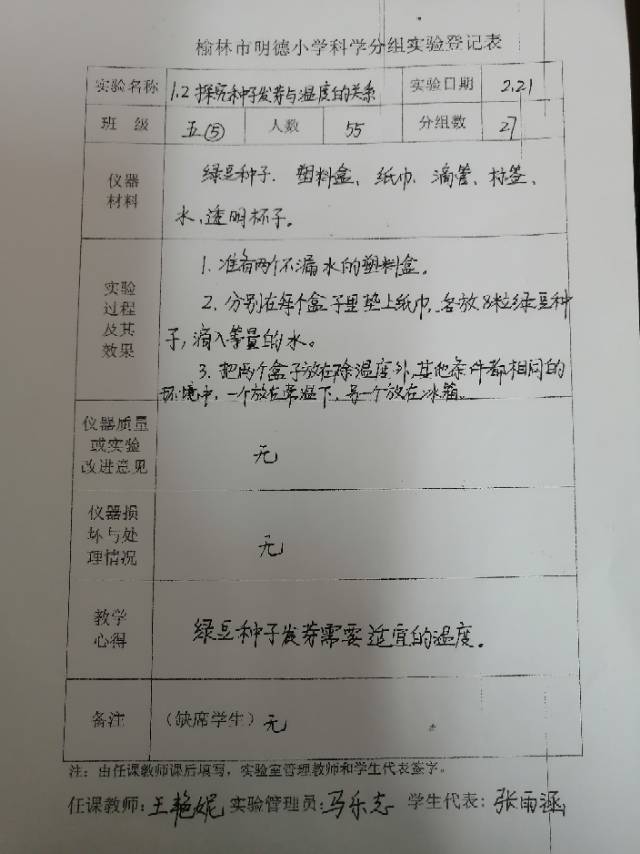 榆林市明德小学科学分组实验登记表
实验名称 1.2探究种子发芽与温度的关系 实验日期 2.21
班 级 五⑤ 人数 55 分组数 27
仪器材料 绿豆种子、塑料盒、纸巾、滴管、标签、
水、透明杯子。
实验过程及其效果 1. 准备两个不漏水的塑料盒。
2. 分别在每个盒子里垫上纸巾,各放8粒绿豆种
子,滴入等量的水。
3. 把两个盒子放在除温度外,其他条件都相同的
环境中,一个放在常温下,另一个放在冰箱。
仪器质量或实验改进意见 无
仪器损坏与处理情况 无
教学心得 绿豆种子发芽需要适宜的温度。
备注 (缺席学生)无
注:由任课教师课后填写,实验室管理教师和学生代表签字。
任课教师:王艳妮 实验管理员:马乐志 学生代表:张雨涵